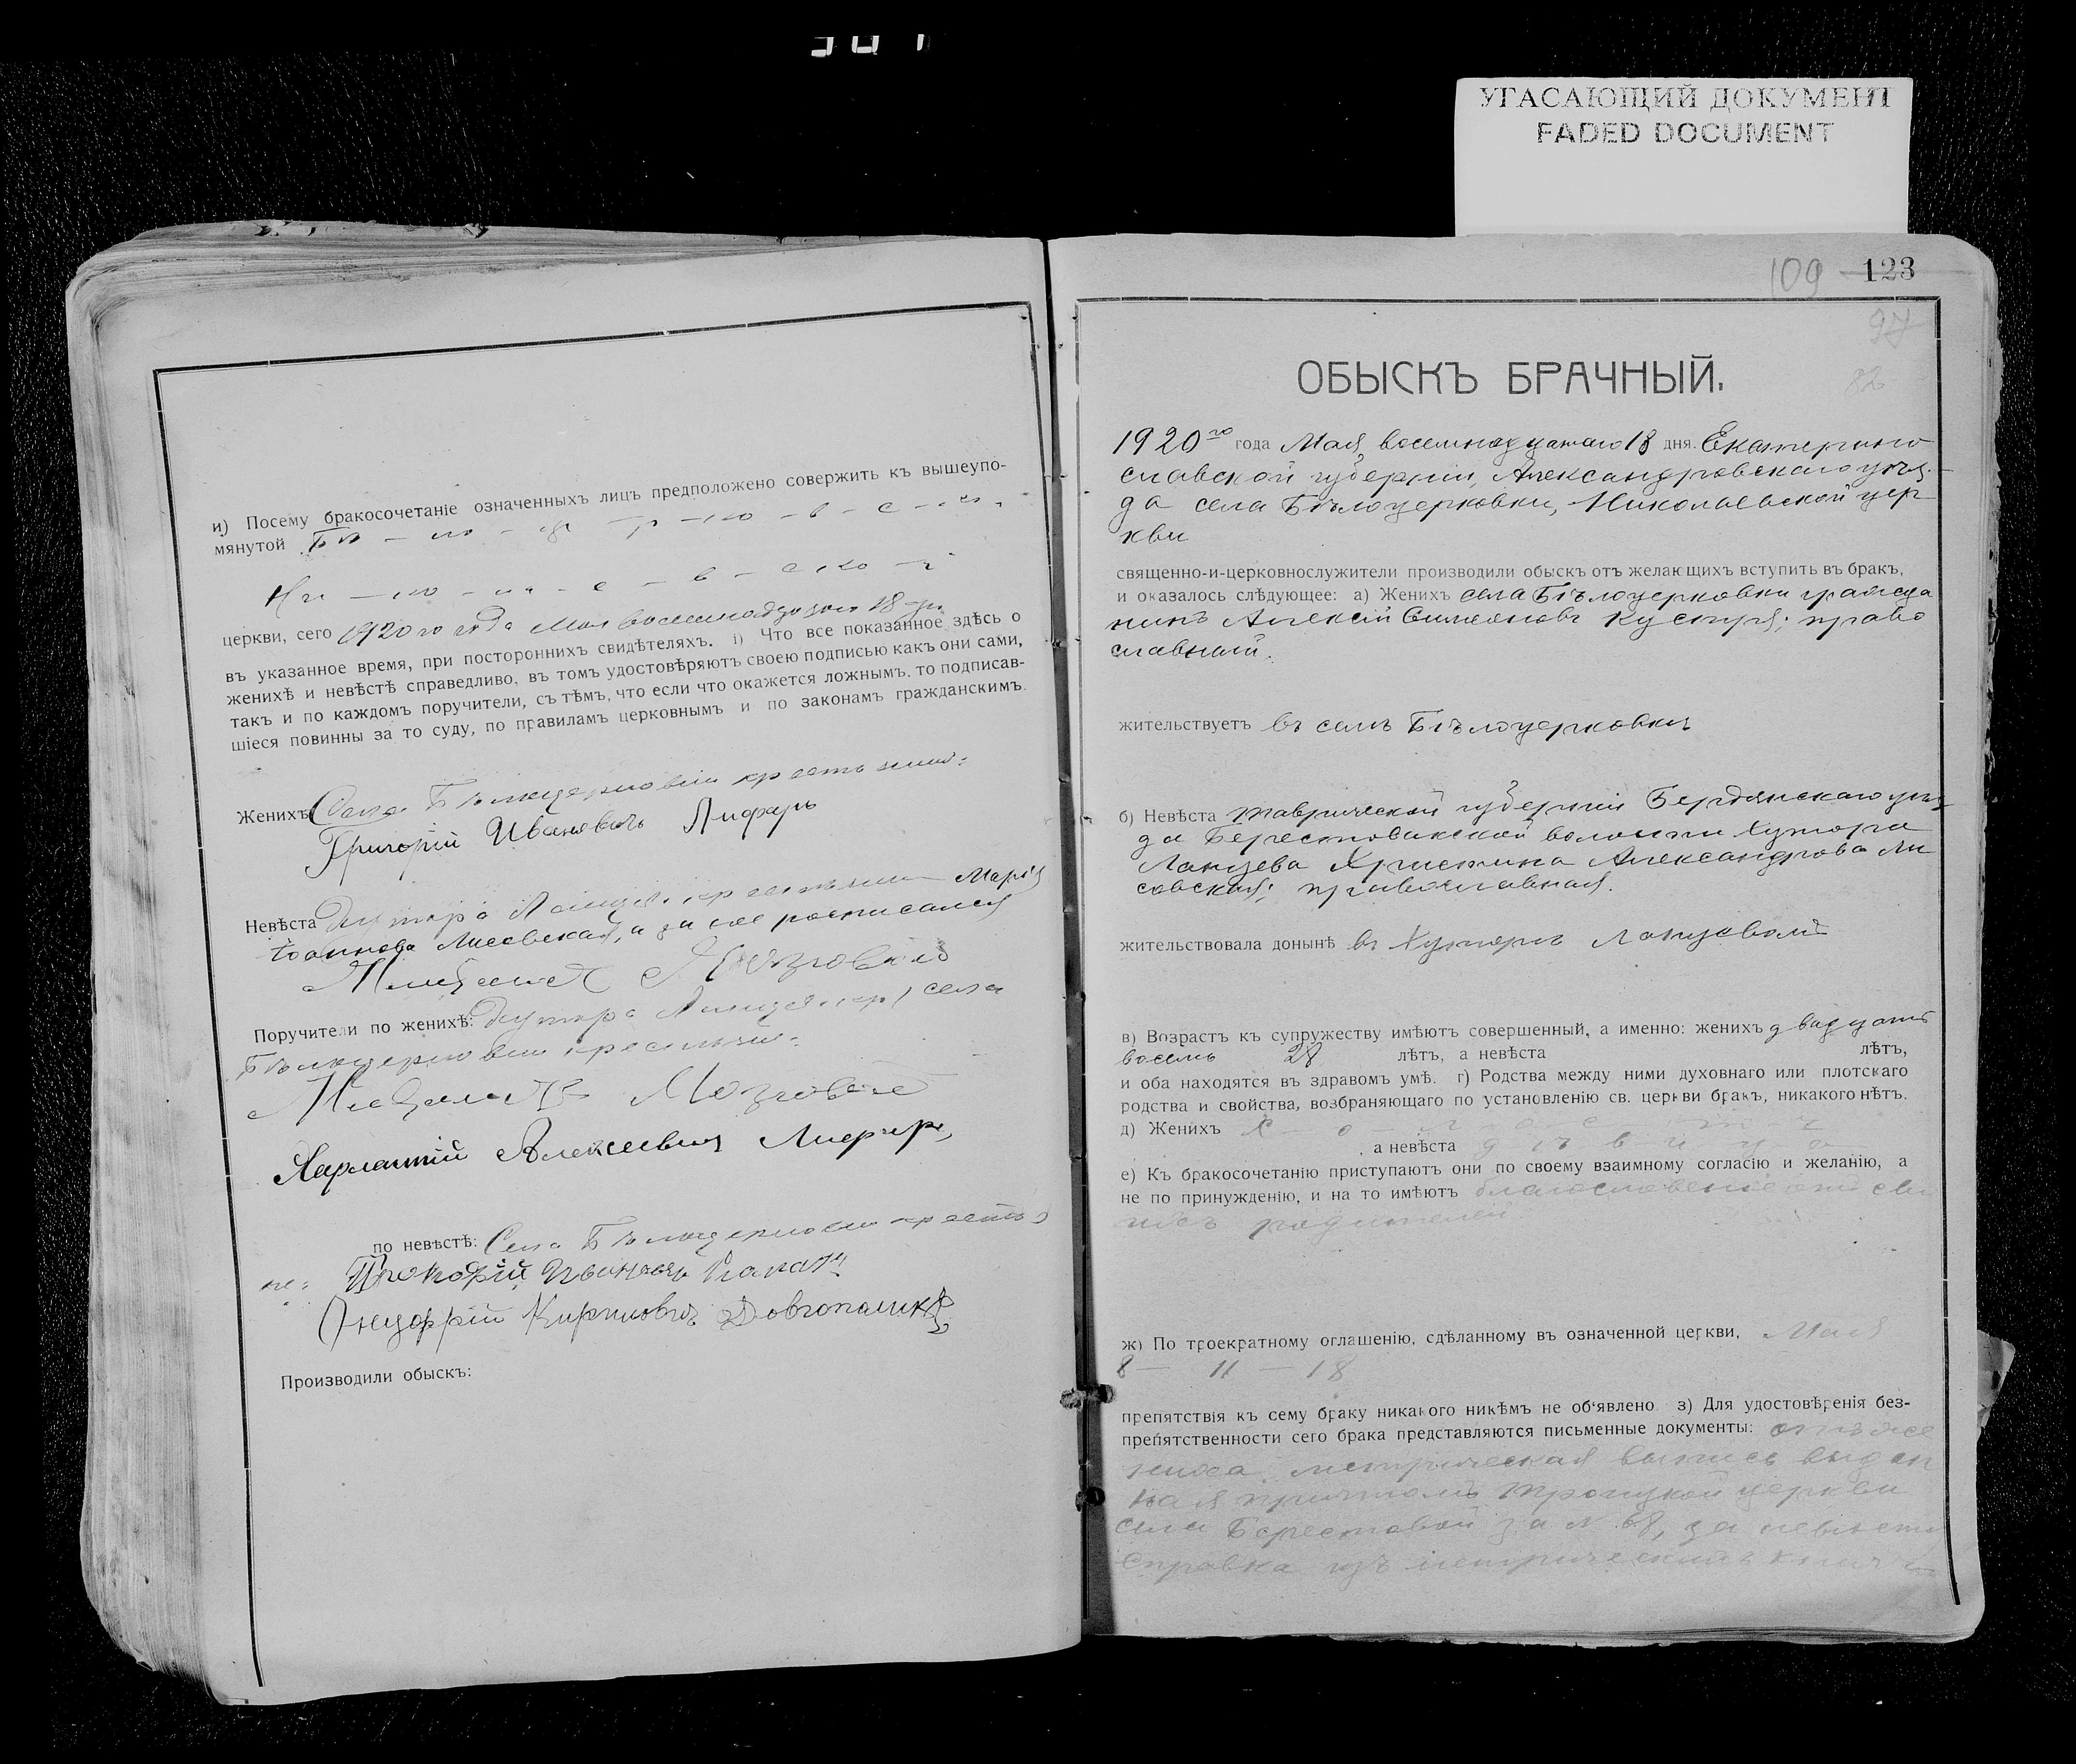 УГАСАЮЩИЙ ДОКУМЕНТ
FADED DOCUMENT
и) Посему бракосочетаніе означенныхъ лицъ предположено совержить къ вышеупо-
мянутой Бѣ — ло — це — р — ко — в — с — ко
Ни — ко — ла — е — в — с ко — й
церкви, сего 1920 го года Мая восемнадцатого 18 дня
въ указанное время, при постороннихъ свидѣтеляхъ. і) Что все показанное здѣсь о
женихѣ и невѣстѣ справедливо, въ томъ удостовѣряютъ своею подписью какъ они сами,
такъ и по каждомъ поручители, съ тѣмъ, что если что окажется ложнымъ, то подписав-
шіеся повинны за то суду, по правиламъ церковнымъ и по законамъ гражданскимъ.
Женихъ Села Бѣлоцерковки крестьянинъ:
Григорій Ивановичъ Лифарь
Невѣста Хутора Ланцева крестьянка Марія
Іоаннова Лисовская, а за нее росписался
Поручители по женихѣ: Хутора Ланцева кр, села
Бѣлоцерковки крестьяне:
Мозговой
Харлампій Алексеевичъ Лифарь
по невѣстѣ: Села Бѣлоцерковки крестья
не: Прокофій Ивановъ
Онуфрій Кириловичъ Довгополик
Производили обыскъ:
109 123
97
82
ОБЫСКЪ БРАЧНЫЙ.
1920го года Мая восемнадцатаго 18 дня. Екатерино
славской губерніи, Александровскаго уѣз
да села Бѣлоцерковки, Николаевской цер
кви
священно-и-церковнослужители производили обыскъ отъ желающихъ вступить въ бракъ,
и оказалось слѣдующее: а) Женихъ села Бѣлоцерковки гражда
нинъ Алексій Симеоновъ православный.
жительствуетъ въ селѣ Бѣлоцерковкѣ
б) Невѣста Таврической губерніи Бердянскаго уѣз
да Берестовакской волости Хутора
Ланцева Христина Александрова Ли
совская; православная.
жительствовала донынѣ въ Хуторѣ Ланцевомъ
в) Возрастъ къ супружеству имѣютъ совершенный, а именно: женихъ двадцать
восемь 28 лѣтъ, а невѣста лѣтъ,
и оба находятся въ здравомъ умѣ. г) Родства между ними духовнаго или плотскаго
родства и свойства, возбраняющаго по установленію св. церкви бракъ, никакого нѣтъ.
д) Женихъ х — о — л — о — с — т — ъ
, а невѣста д ѣ в и ц а
е) Къ бракосочетанію приступаютъ они по своему взаимному согласію и желанію, а
не по принужденію, и на то имѣютъ благословеніе отъ сво
ихъ родителей
ж) По троекратному оглашенію, сдѣланному въ означенной церкви, Мая
8 — 11 — 18
препятствія къ сему браку никакого никѣмъ не об‘явлено з) Для удостовѣренія без-
препятственности сего брака представляются письменные документы: отъ же
ниха метрическая выпись выдан
ная причтомъ Троицкой церкви
села Берестовой за № 68, за невѣсту
Справка изъ метрическихъ книгъ